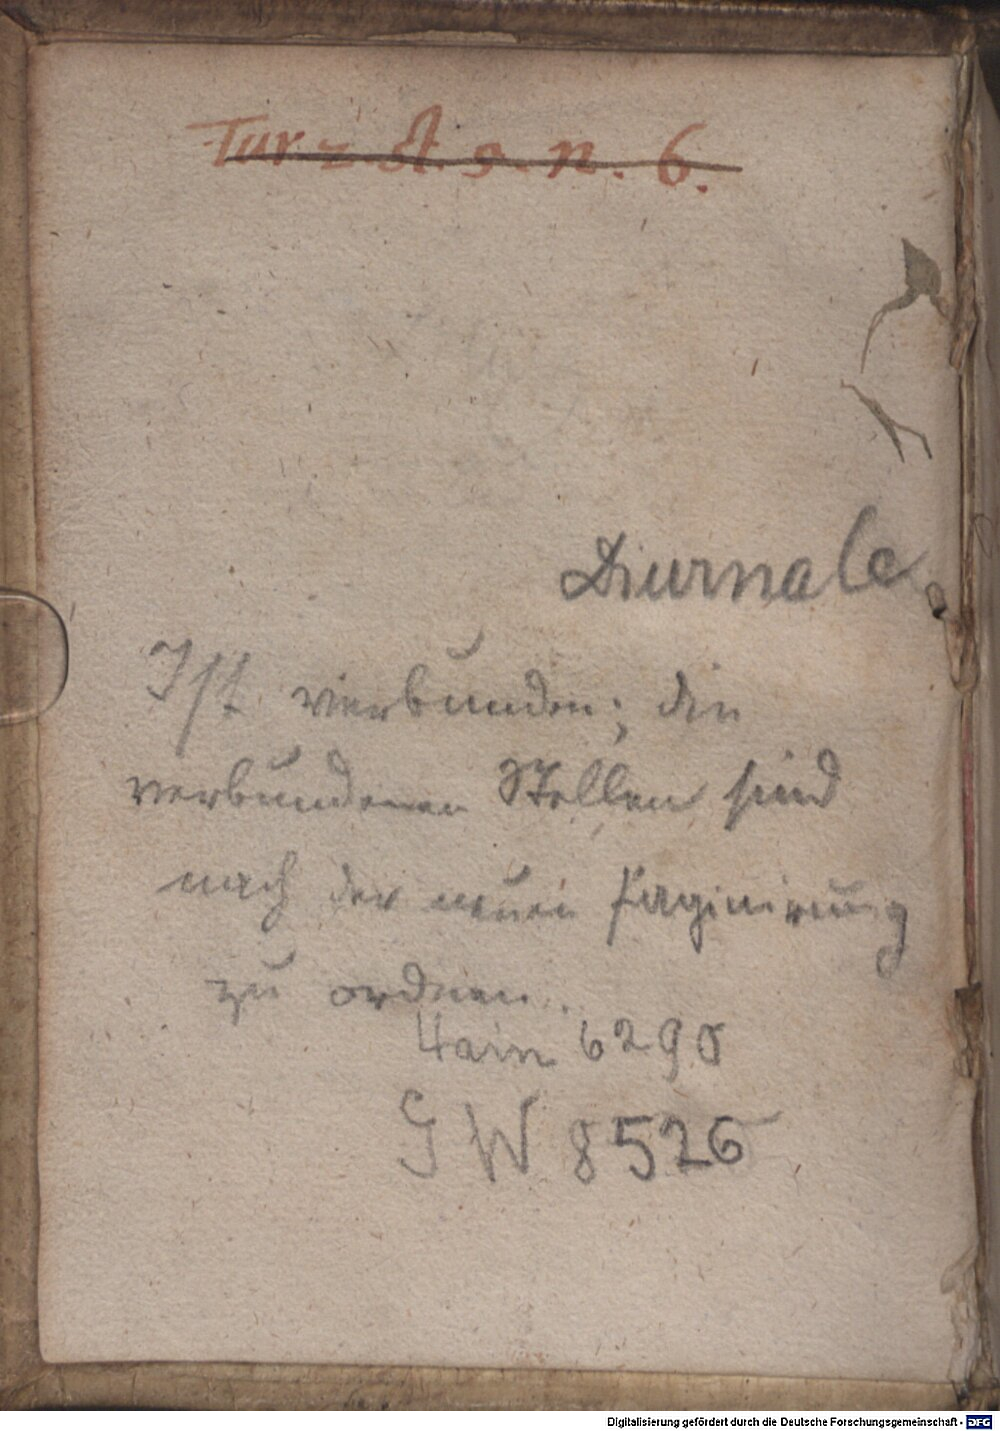 Tur z. St. 3. n. 6.
Diurnale
Ist verbunden; die
verbundenen Stellen sind
nach der neuen Paginirung
zu ordnen.
Hain 6290
GW 8526
Digitalisierung gefördert durch die Deutsche Forschungsgemeinschaft - DFG